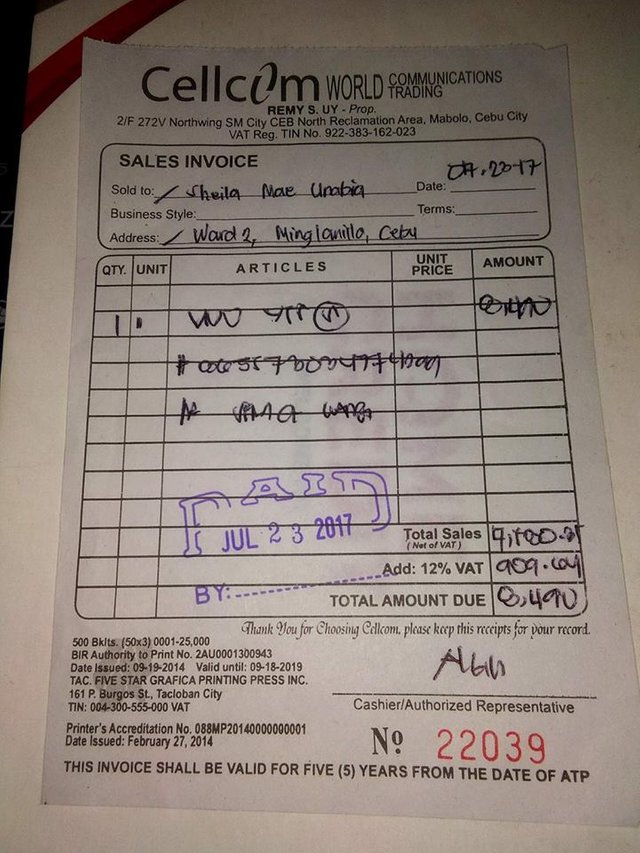 Cellcom WORLD COMMUNICATIONS TRADING
REMY S. UY - Prop.
2/F 272V Northwing SM City CEB North Reclamation Area, Mabolo, Cebu City
VAT Reg. TIN No. 922-383-162-023
SALES INVOICE
Sold to: Sheila Mae Unabia Date: 07.2017
Business Style: Terms:
Address: Ward 2, Minglanilla, Cebu
QTY. UNIT ARTICLES UNIT PRICE AMOUNT
1 8,490
PAID
JUL 23 2017
BY:
Total Sales
(Net of VAT)
Add: 12% VAT 909.64
TOTAL AMOUNT DUE 8,490
Thank You for Choosing Cellcom, please keep this receipts for your record.
500 Bklts. (50x3) 0001-25,000
BIR Authority to Print No. 2AU0001300943
Date Issued: 09-19-2014 Valid until: 09-18-2019
TAC. FIVE STAR GRAFICA PRINTING PRESS INC.
161 P. Burgos St., Tacloban City
TIN: 004-300-555-000 VAT
Cashier/Authorized Representative
Printer's Accreditation No. 088MP20140000000001
Date Issued: February 27, 2014
No 22039
THIS INVOICE SHALL BE VALID FOR FIVE (5) YEARS FROM THE DATE OF ATP